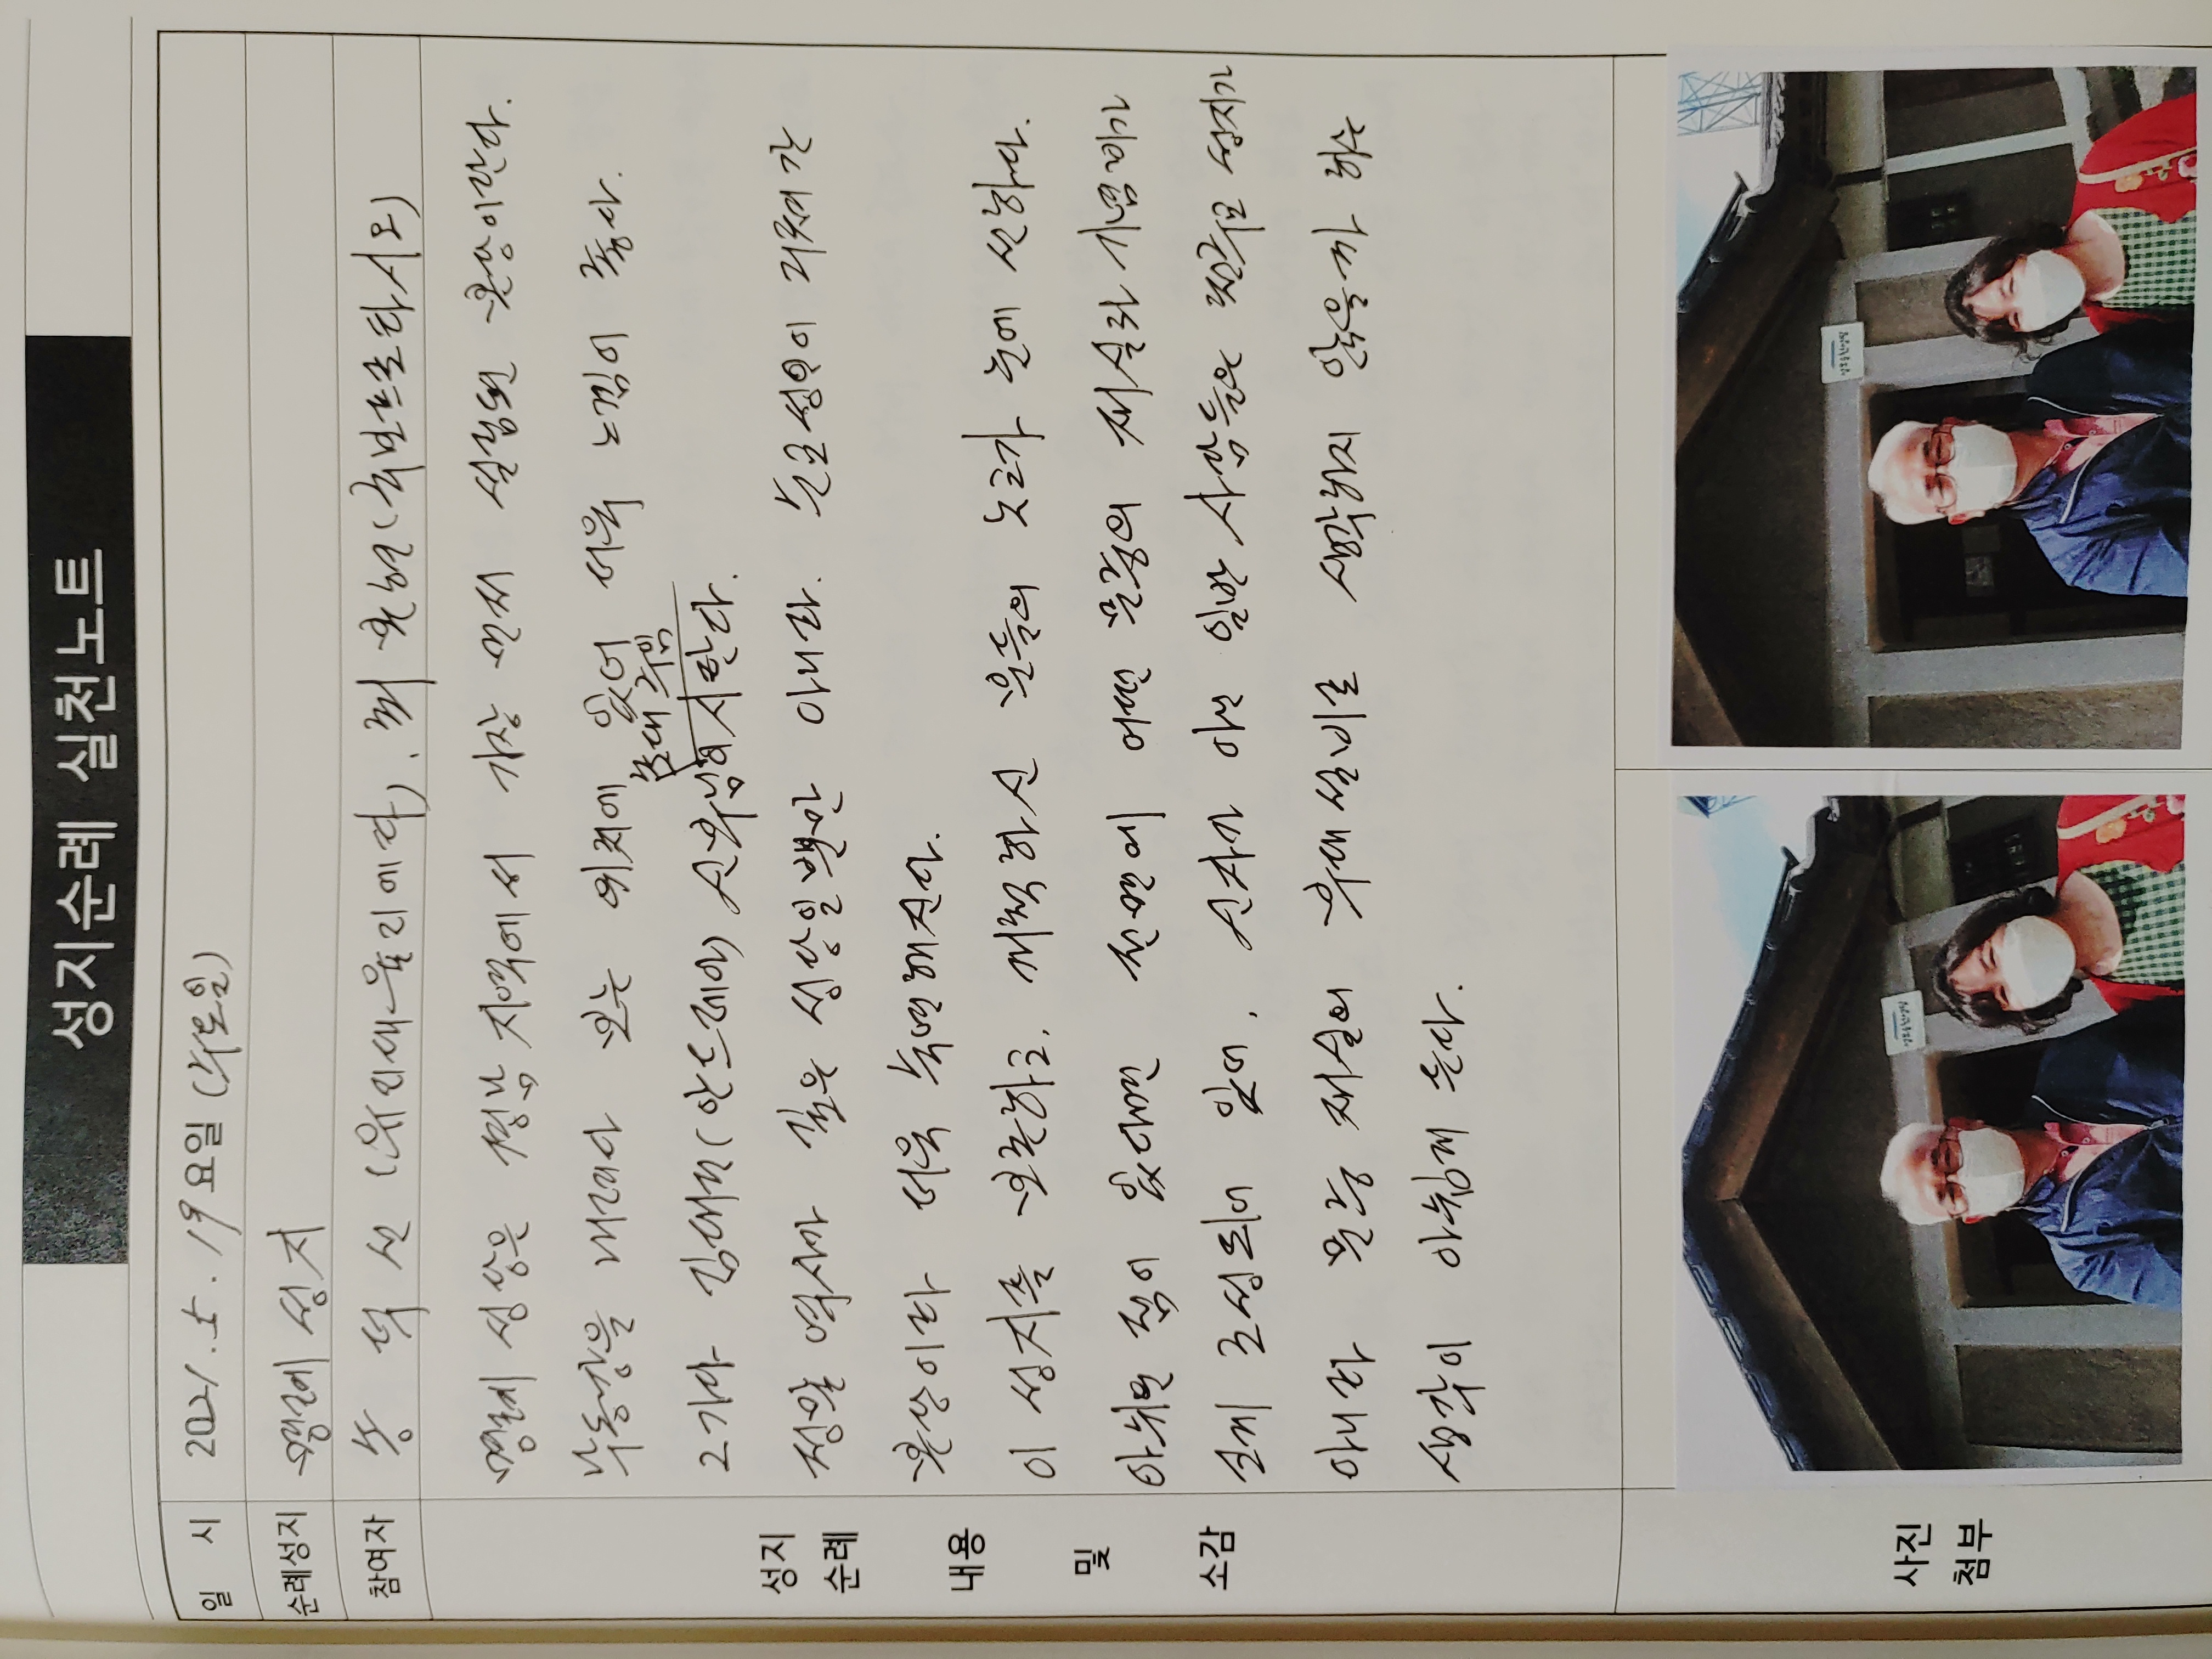 성지순례 실천노트
일 시 2021. 5. 19 요일 (수요일)
순례성지 명례 성지
참여자 송 덕 선 (유리대 율리에따), 최 본현 (국보 프로타시오)
명례 성당은 경남 지역에서 가장 먼저 설립된 본당이란다.
낙동강을 내려다 보는 위치에 있어 더욱 느낌이 좋다.
초대 주임
그기다 김대건(안드레아) 신부님이시란다.
정말 역사가 깊은 성당일뿐만 아니라. 순교성인이 거쳐 간
본당이라 더욱 숙연해진다.
이 성지를 보존하고, 개척하신 분들의 노고가 눈에 선하다.
아쉬운 점이 있다면 전면에 어떤 문중의 재실과 기념비가
크게 조성되어 있어, 신자가 아닌 일반 사람들은 천주교 성지가
아니라 문중 재실의 부대설비로 생각하지 않을까 하는
생각이 아쉽게 든다.
성지
순례
내용
및
소감
사진
첨부
성모승천성당
성모승천성당